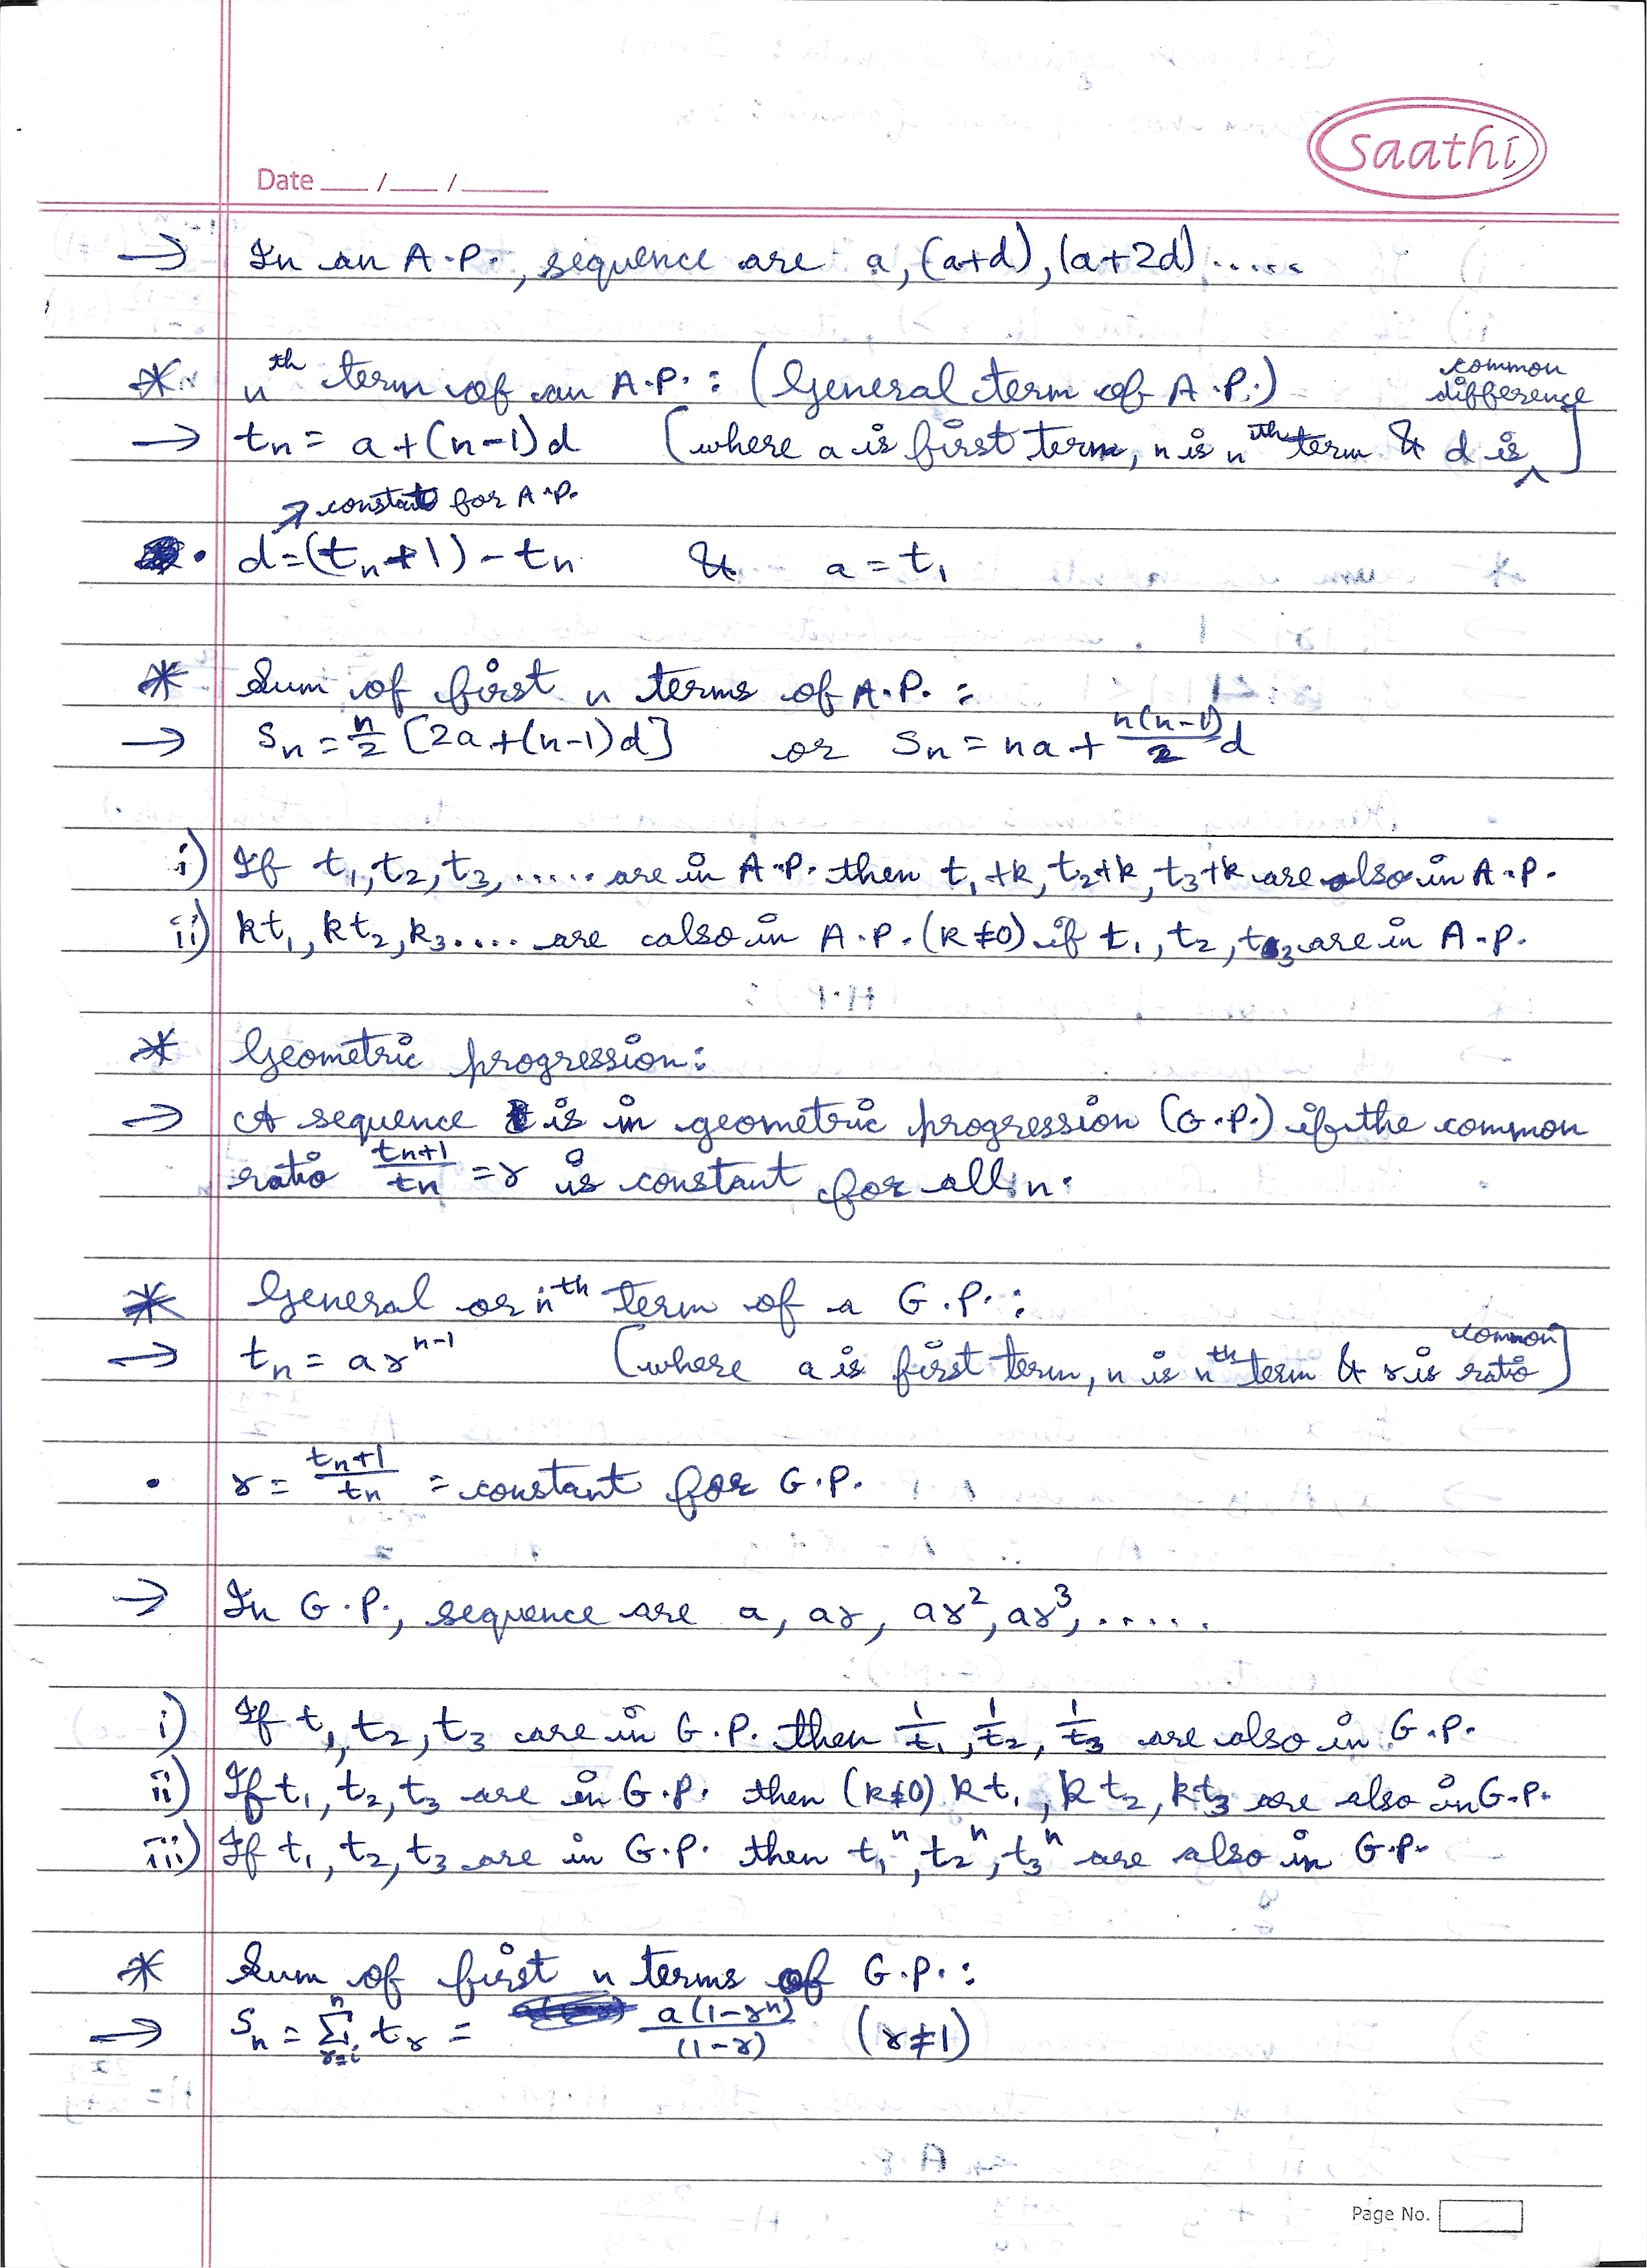 saathi
Date ___ / ___ / ______
→ In an A.P., sequence are a, (a+d), (a+2d) .....
common
* nth term of an A.P. : (General term of A.P.) difference
→ tn = a + (n-1)d (where a is first term, n is nth term & d is ^]
↗ constant for A.P.
• d = (tn+1) - tn & a = t₁
* Sum of first n terms of A.P. :
→ Sn = n/2 [2a + (n-1)d] or Sn = na + n(n-1)/2 d
i) If t₁, t₂, t₃, ..... are in A.P. then t₁+k, t₂+k, t₃+k are also in A.P.
ii) kt₁, kt₂, k₃ ..... are also in A.P. (k≠0) if t₁, t₂, t₃ are in A.P.
* Geometric progression:
→ A sequence is in geometric progression (G.P.) if the common
ratio tn+1/tn = r is constant for all n.
* General or nth term of a G.P. :
common
→ tn = arⁿ⁻¹ (where a is first term, n is nth term & r is ratio]
• r = tn+1/tn = constant for G.P.
→ In G.P., sequence are a, ar, ar², ar³, .....
i) If t₁, t₂, t₃ are in G.P. then 1/t₁, 1/t₂, 1/t₃ are also in G.P.
ii) If t₁, t₂, t₃ are in G.P. then (k≠0) kt₁, kt₂, kt₃ are also in G.P.
iii) If t₁, t₂, t₃ are in G.P. then t₁ⁿ, t₂ⁿ, t₃ⁿ are also in G.P.
* Sum of first n terms of G.P. :
→ Sn = nΣr=i tr = a(1-rⁿ)/(1-r) (r≠1)
Page No.